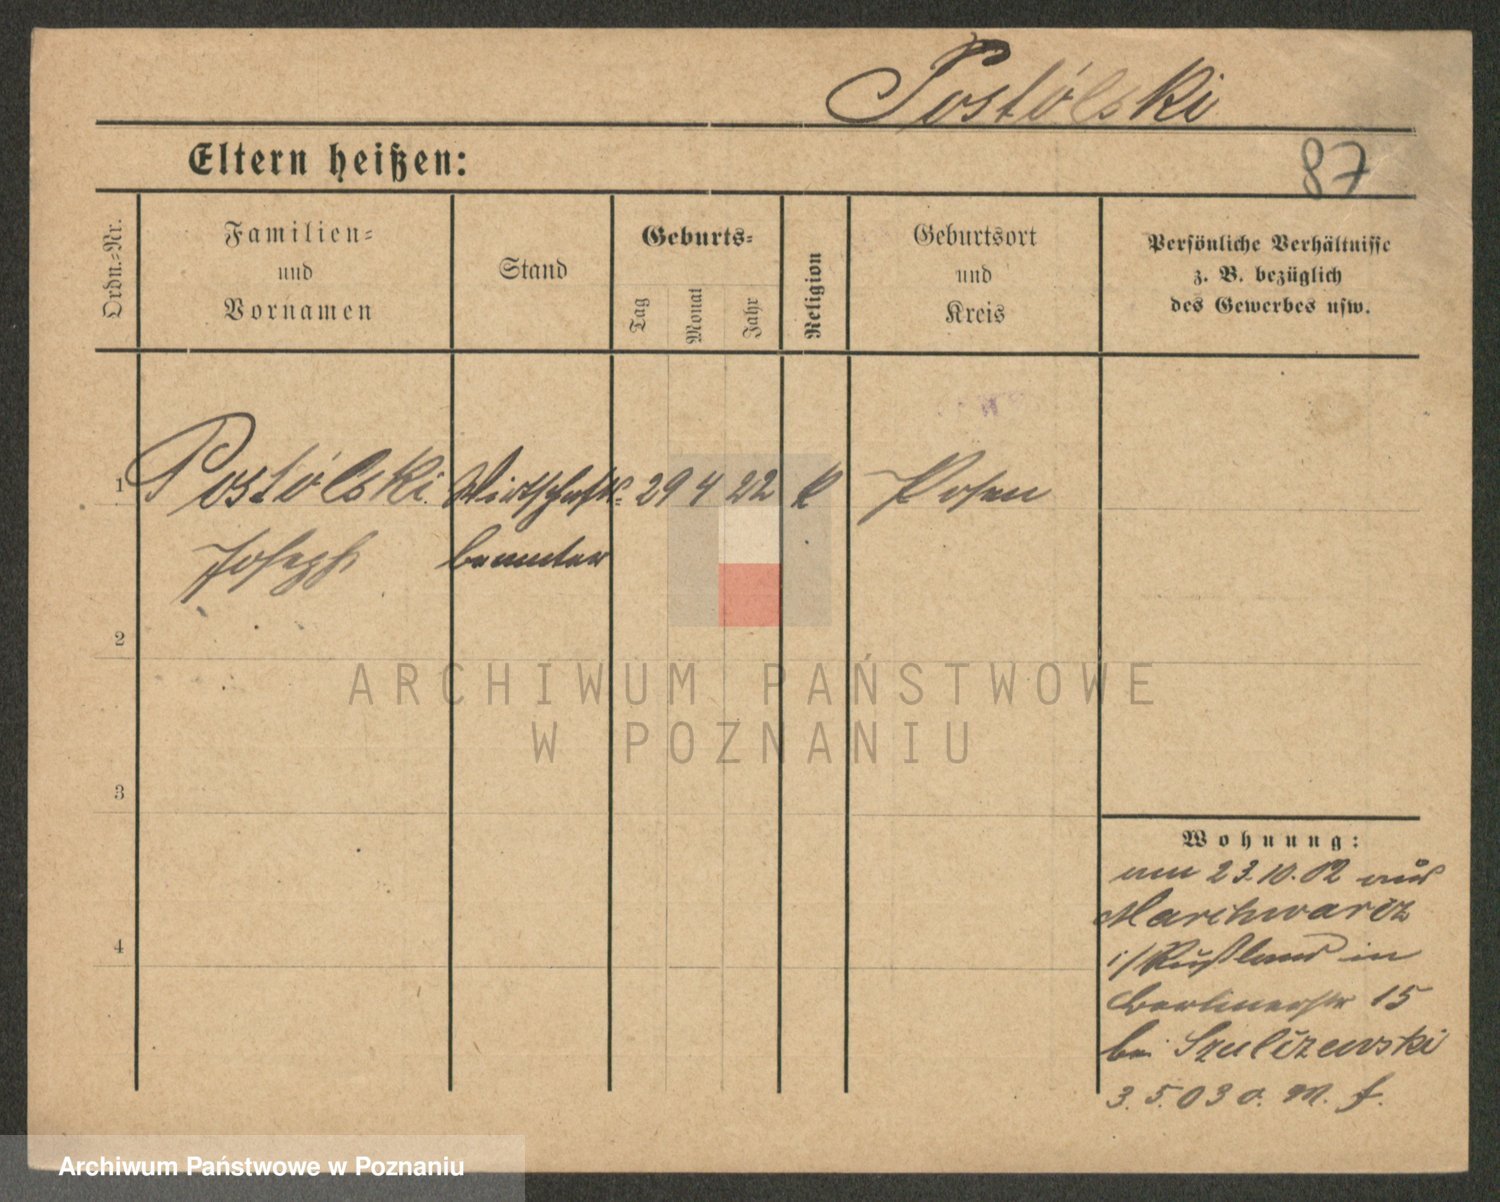 Postólski
Eltern heißen:
87
Ordn.-Nr.
Familien-
und
Vornamen
Stand
Geburts-
Tag
Monat
Jahr
Religion
Geburtsort
und
Kreis
Persönliche Verhältnisse
z. B. bezüglich
des Gewerbes usw.
1 Postólski Wirtschafts- 29 4 22 k Posen
Joseph beamter
2
3
4
ARCHIWUM PAŃSTWOWE
W POZNANIU
Wohnung:
am 23.10.02 aus
i/Rußland in
Berlinerstr 15
bei Szulczewski
3.5.03 o. M. f.
Archiwum Państwowe w Poznaniu